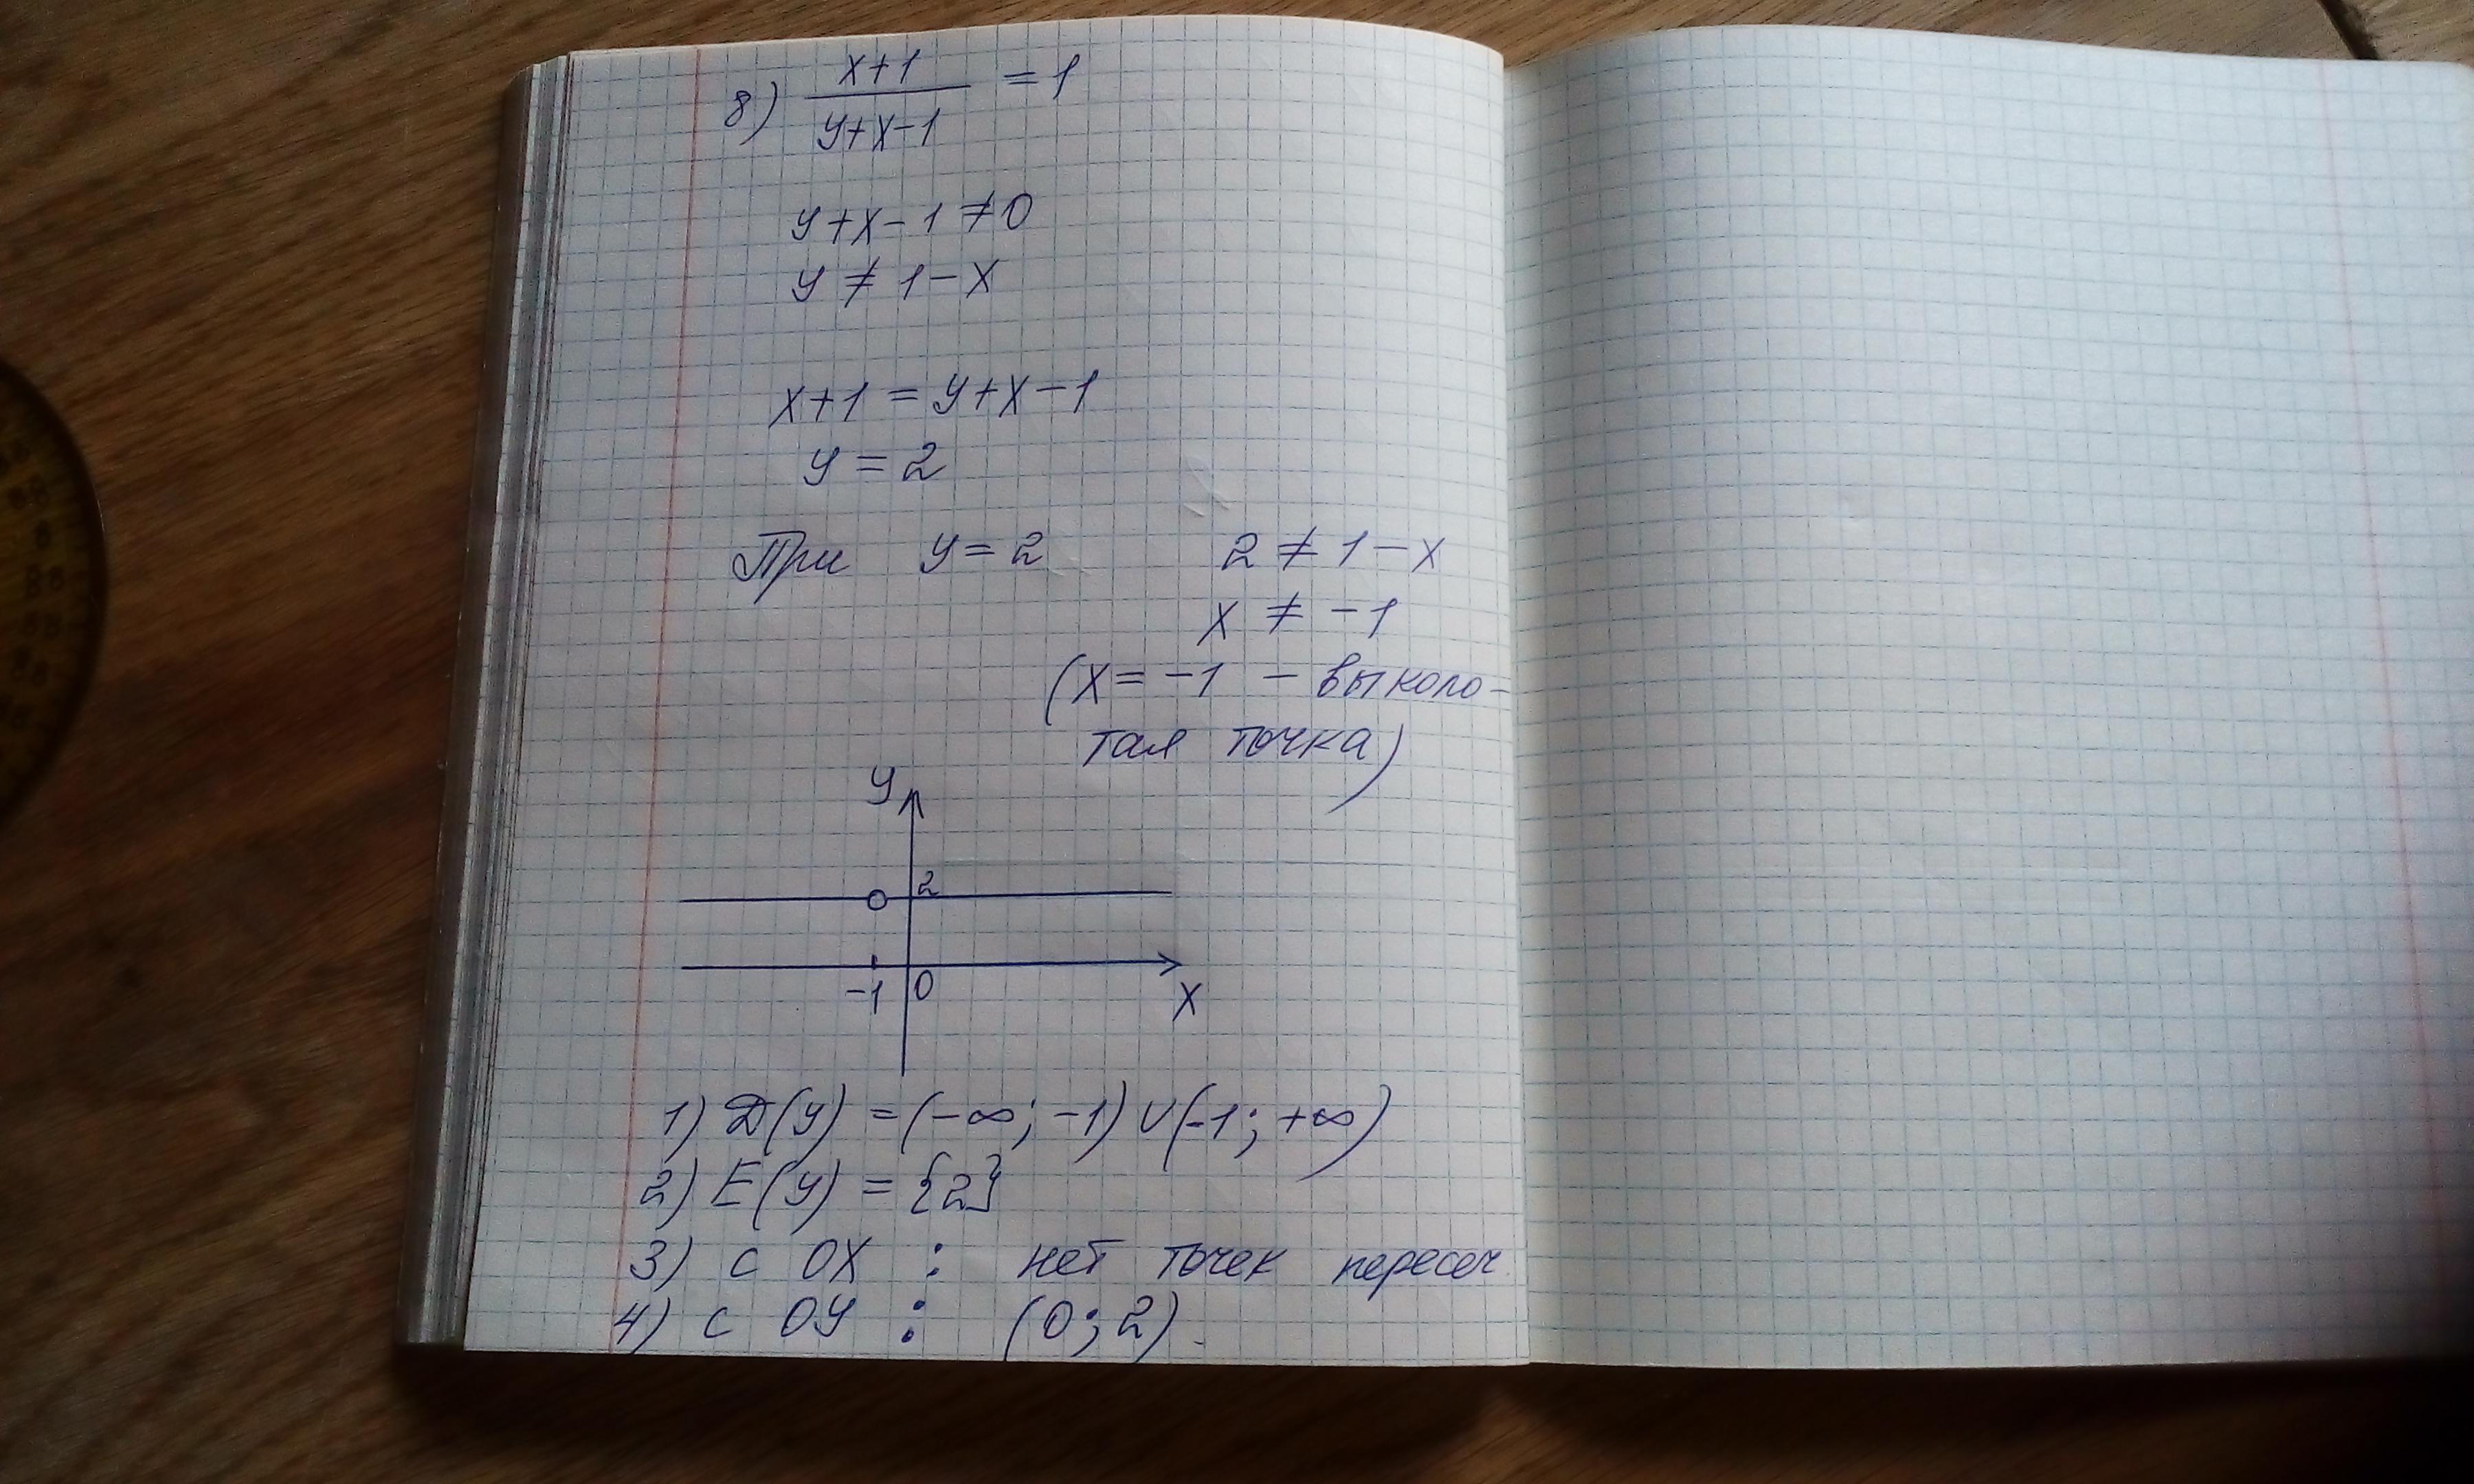 8) x+1 / y+x-1 = 1
y+x-1 ≠ 0
y ≠ 1-x
x+1 = y+x-1
y = 2
При y=2 2 ≠ 1-x
x ≠ -1
(x = -1 - выколо-
тая точка)
y
2
-1 0
x
1) D(y) = (-∞; -1) ∪ (-1; +∞)
2) E(y) = {2}
3) с OX : нет точек пересеч.
4) с OY : (0; 2).